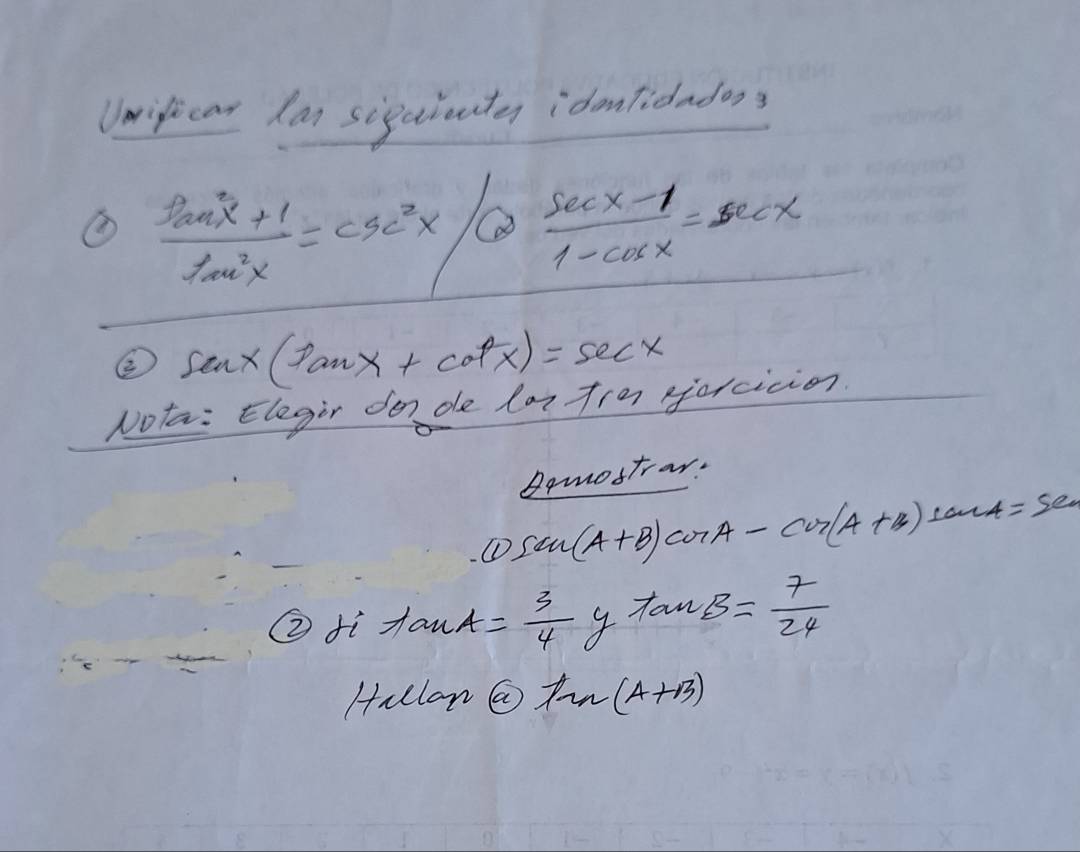 Verificar las siguientes identidades:
① (tan²x + 1)/(tan²x) = csc²x / ② (secx - 1)/(1 - cosx) = secx
③ senx (tanx + cotx) = secx
Nota: Elegir dos de los tres ejercicios.
Demostrar:
① sen(A+B) cosA - cos(A+B) senA = sen
② si tanA = 3/4 y tanB = 7/24
Hallar ⓐ tan(A+B)